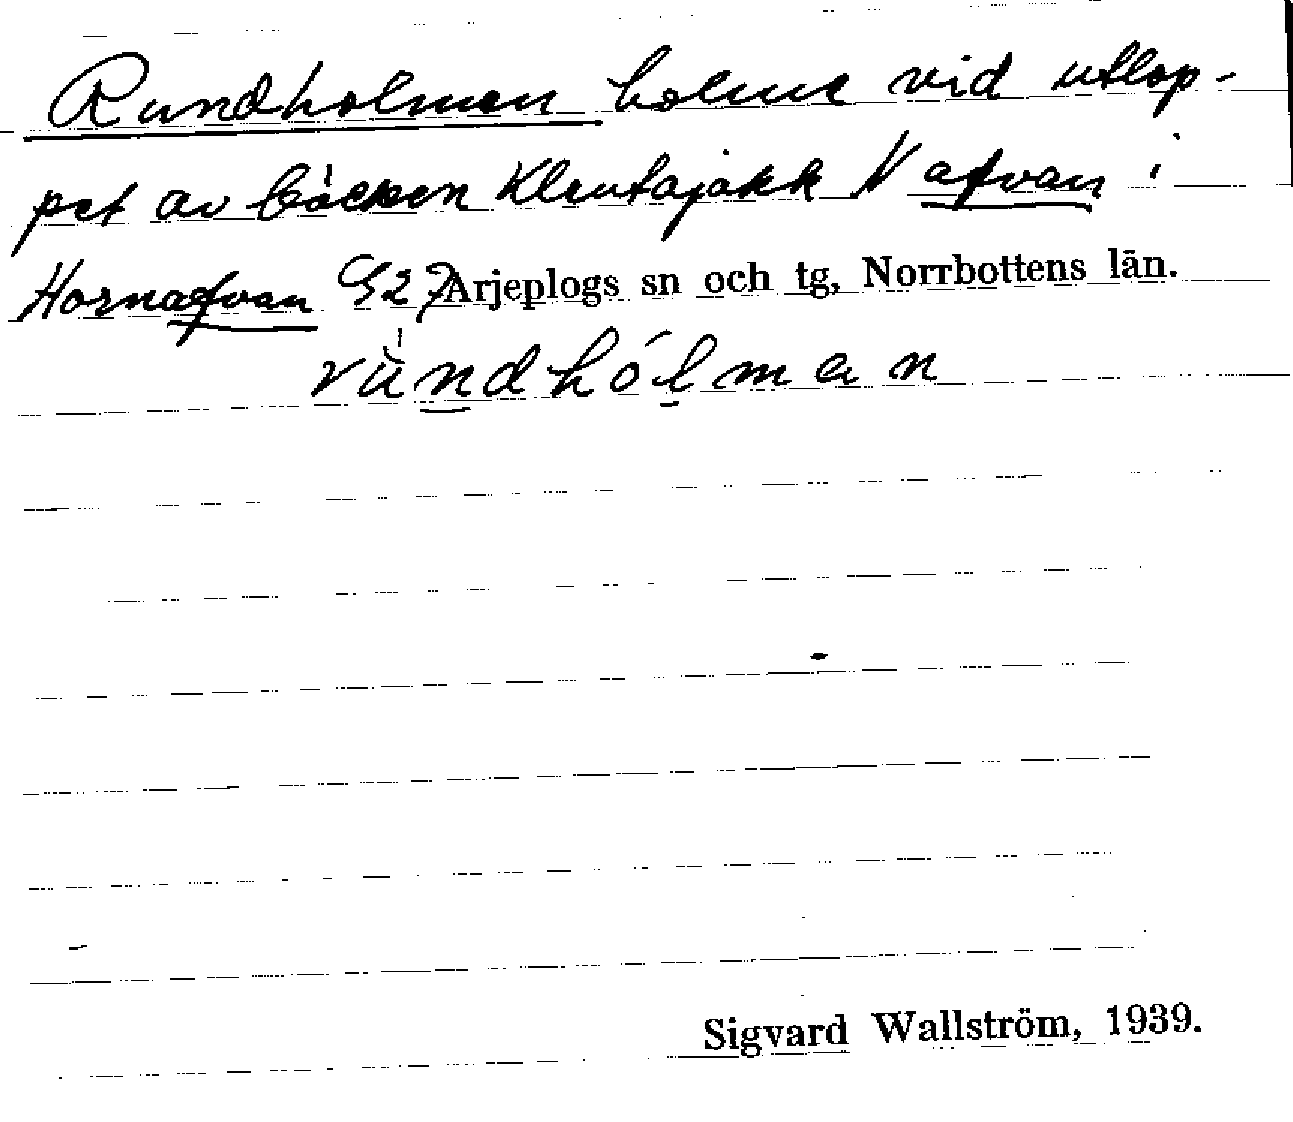 Rundholmen holme vid utlop-
pet av bäcken Kleutajåkk N afvan i
Hornafvan G27 Arjeplogs sn och tg, Norrbottens län.
rùndhólman
Sigvard Wallström, 1939.